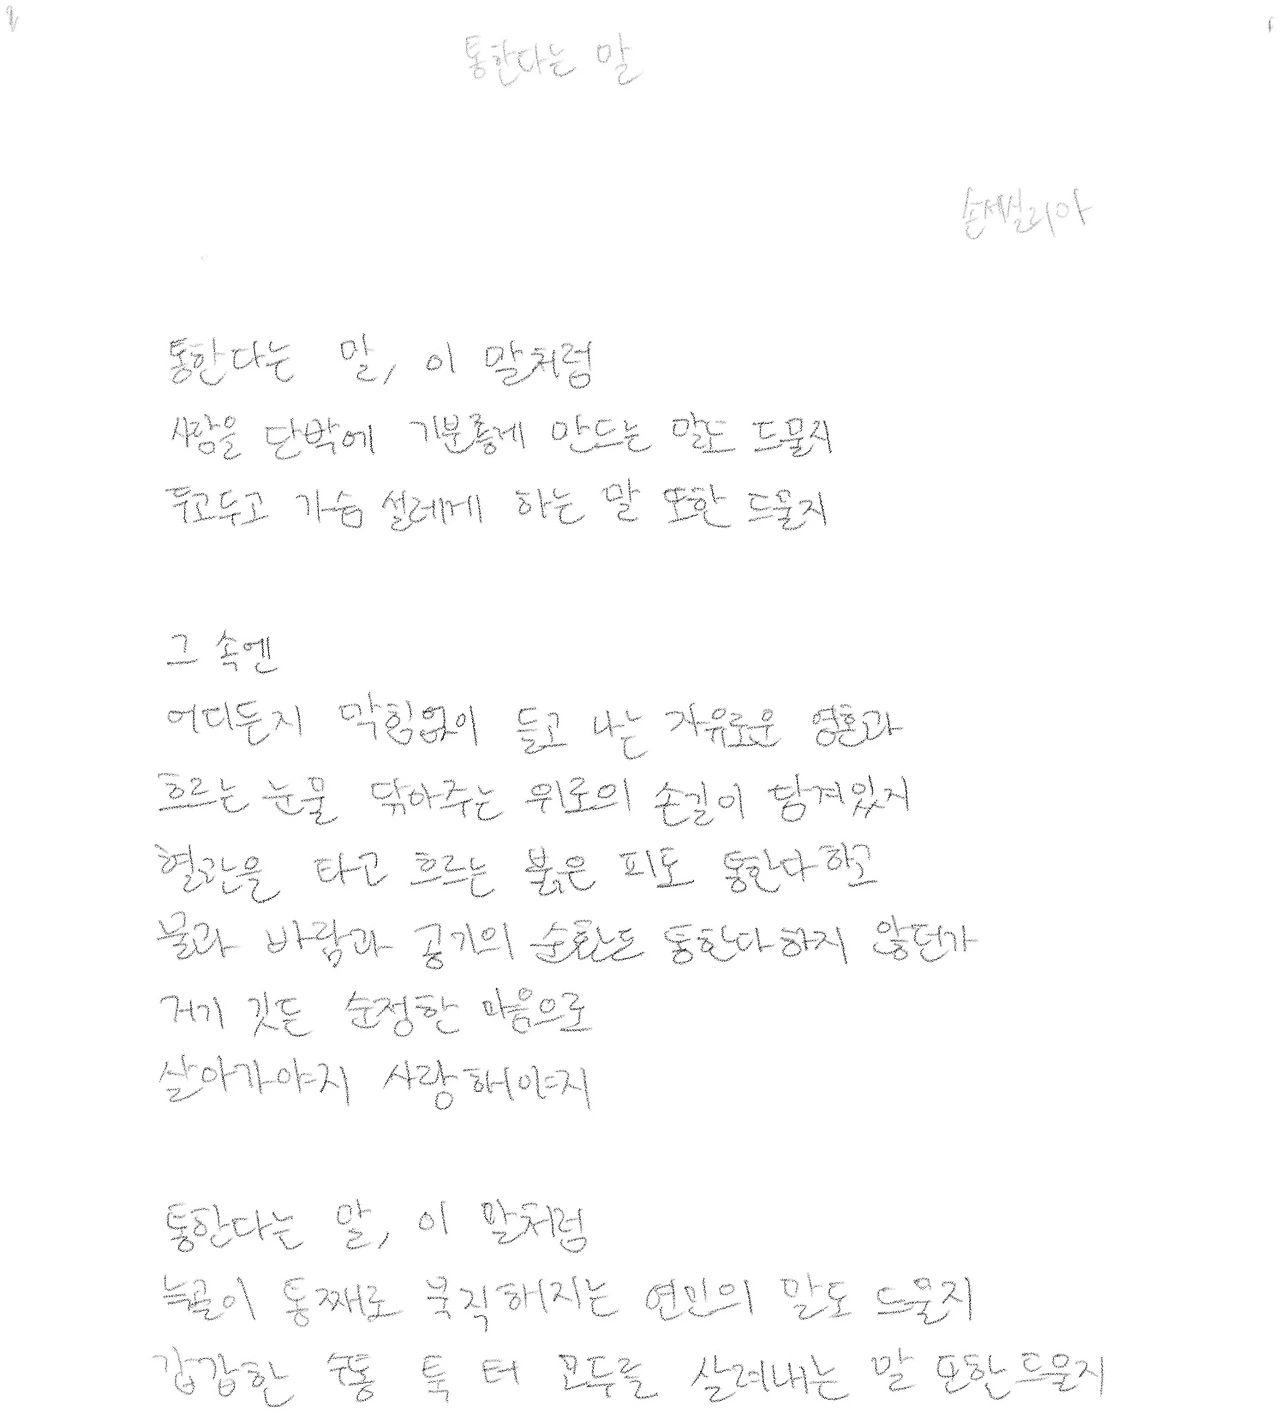 통한다는 말
손세실리아
통한다는 말, 이 말처럼
사람을 단박에 기분좋게 만드는 말도 드물지
두고두고 가슴 설레게 하는 말 또한 드물지
그 속엔
어디든지 막힘없이 들고 나는 자유로운 영혼과
흐르는 눈물 닦아주는 위로의 손길이 담겨있지
혈관을 타고 흐르는 붉은 피도 통한다하고
물과 바람과 공기의 순환도 통한다하지 않던가
거기 깃든 순정한 마음으로
살아가야지 사랑해야지
통한다는 말, 이 말처럼
늑골이 통째로 묵직해지는 연민의 말도 드물지
갑갑한 숨통 툭 터 모두를 살려내는 말 또한 드물지